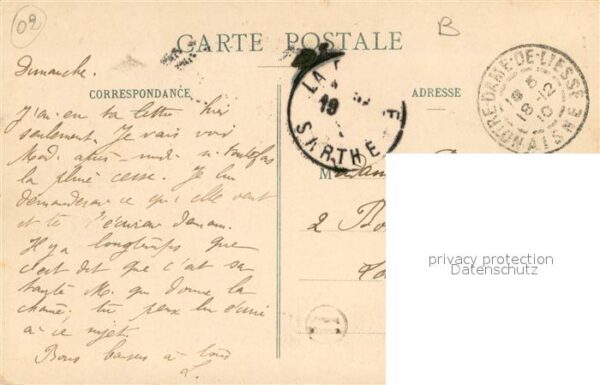 02
B
CARTE POSTALE
Dimanche.
CORRESPONDANCE
ADRESSE
J'ai eu ta lettre hier
seulement. Je vais voir
Mad. après-midi si toutefois
la pluie cesse. Je lui
demanderai ce qu'elle veut
et te l'écrirai demain.
Il y a longtemps que
c'est dit que c'est sa
M. qui donne la
tu peux lui écrire
à ce sujet
Bons baisers à tous
L.
LA
19
SARTHE
NOTRE-DAME-DE-LIESSE
AISNE
Madam
2 Bo
privacy protection
Datenschutz